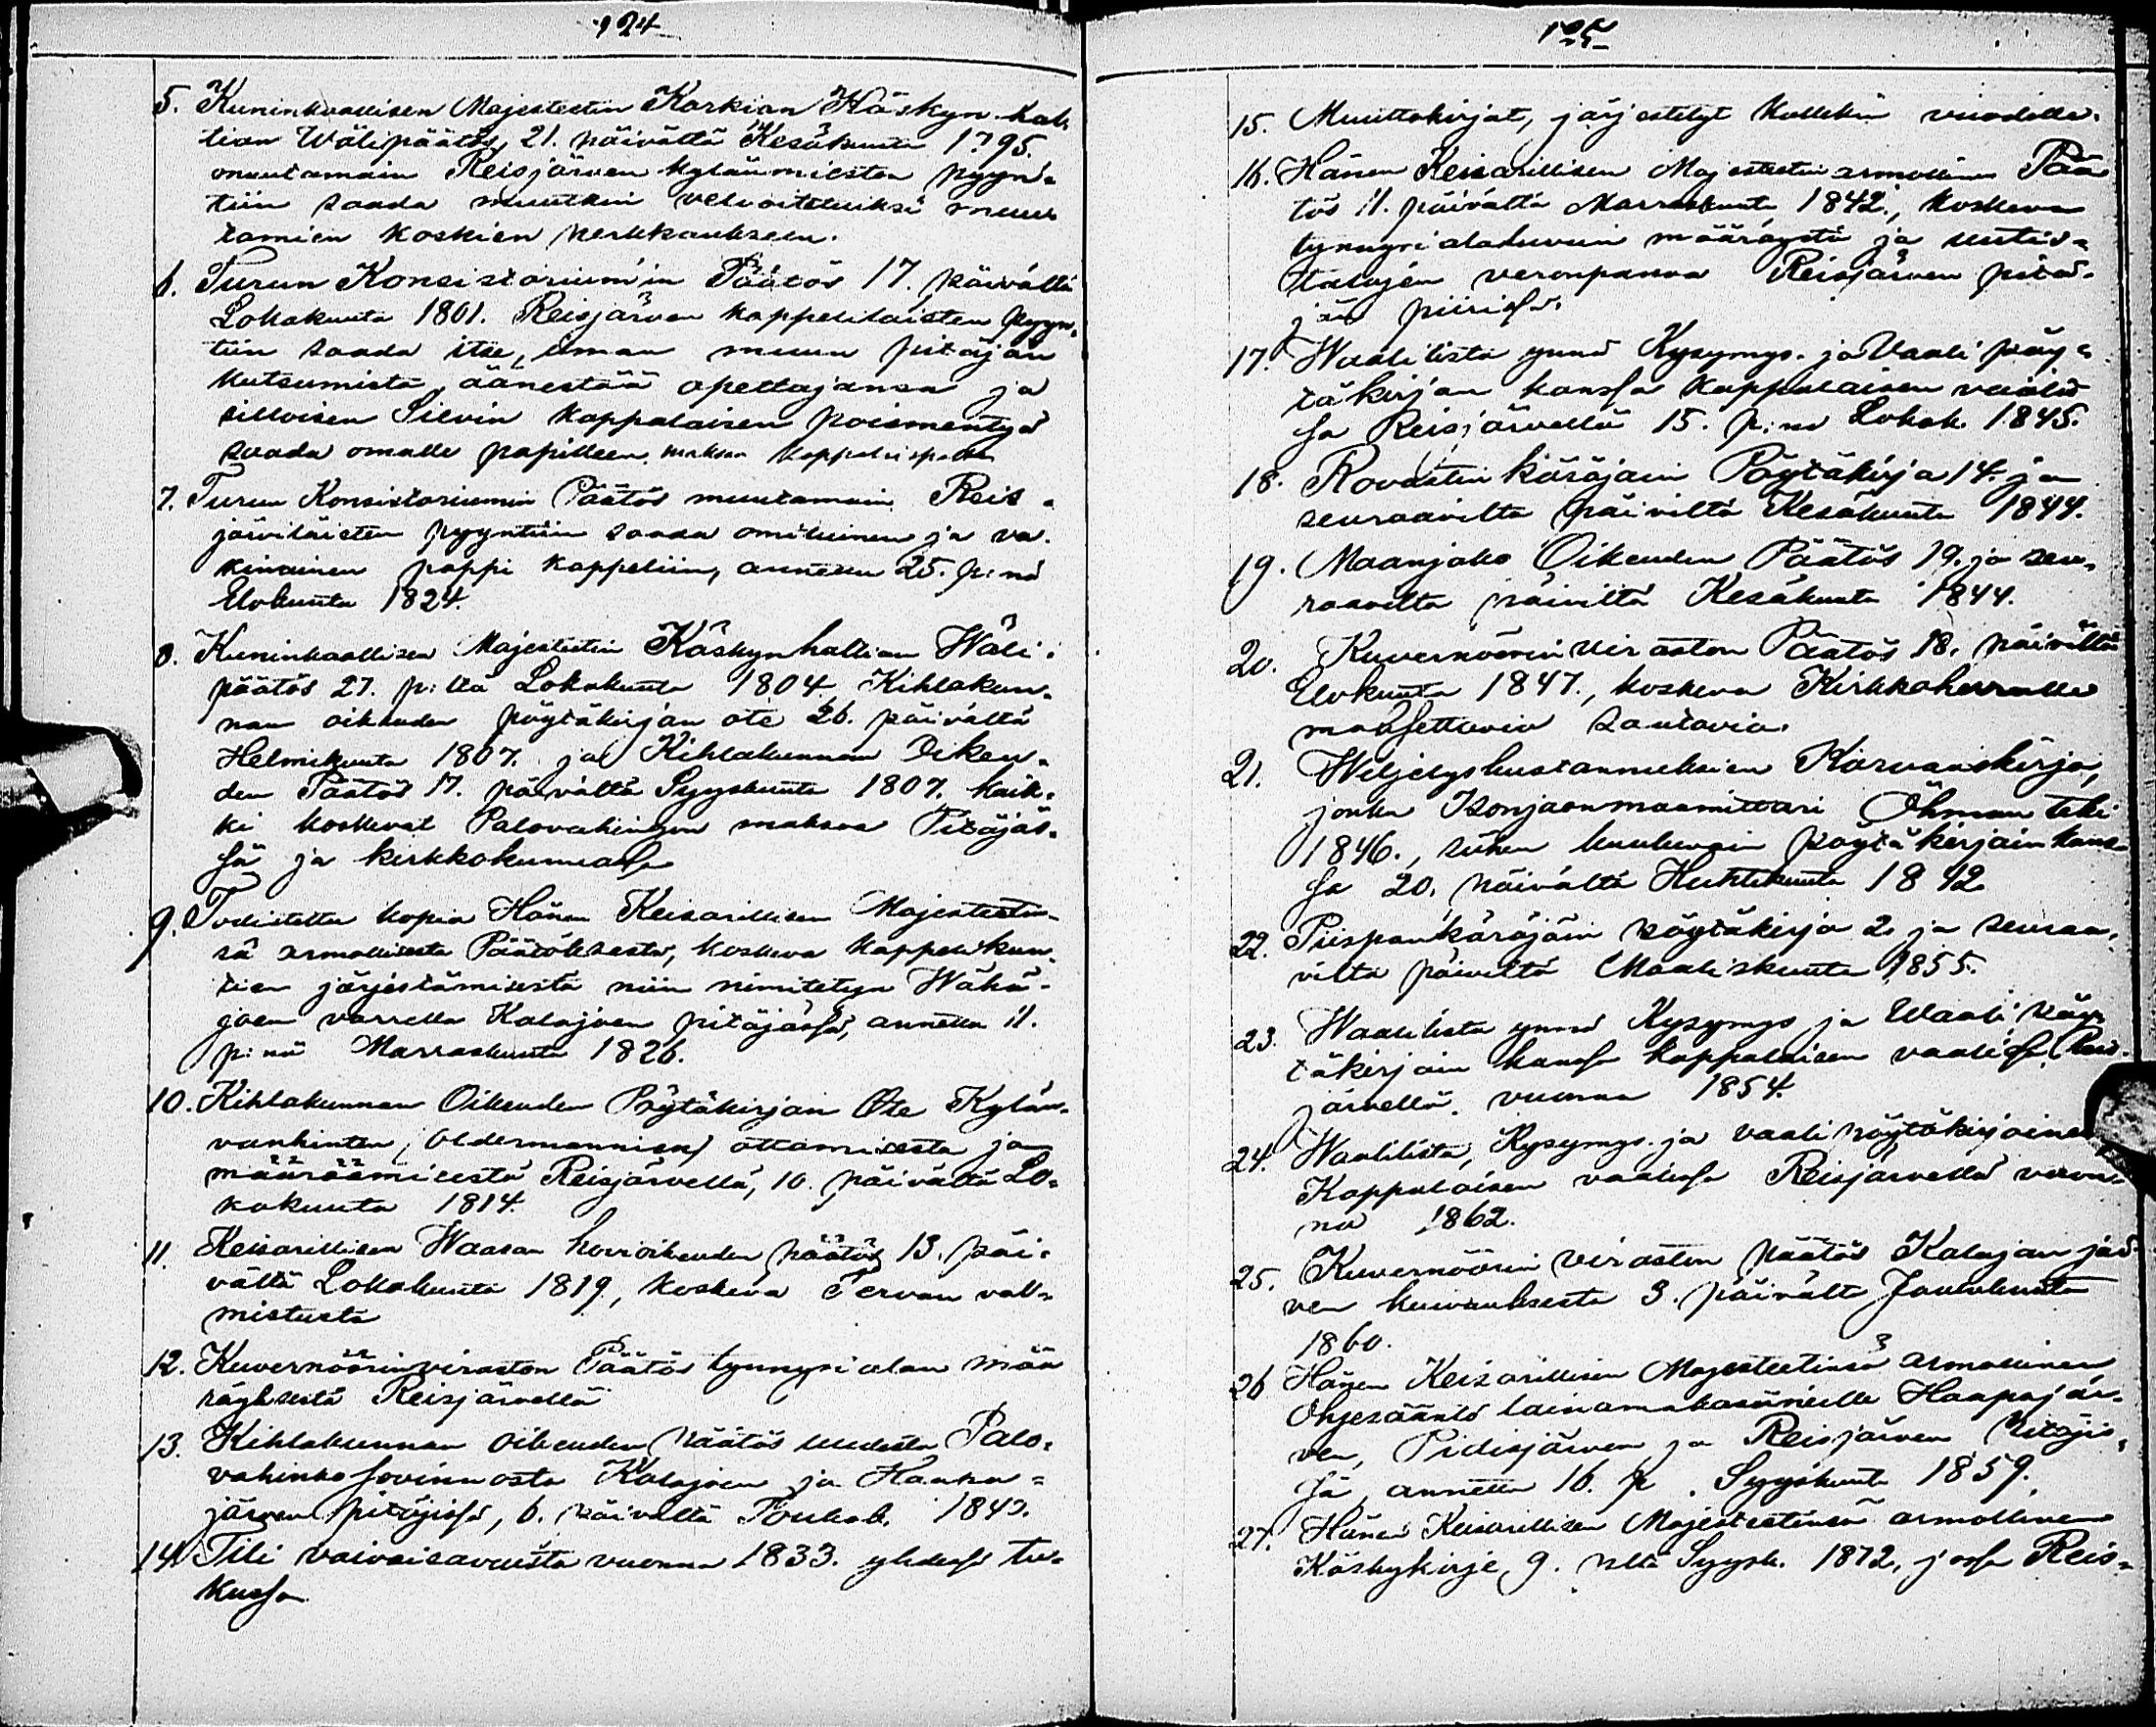 124
5. Kuninkaallisen Majesteetin Korkian Käskyn hal-
tian Wälipäätös, 21. päivältä Kesäkuuta 1795.
muutamain Reisjärven kyläumiesten pyyn-
tiin saada muutkin velvoitetuiksi muu
tamien koskien perkkaukseen.
6. Turun Konsistorium'in Päätös 17. päivältä
Lokakuuta 1801. Reisjärven kappelilaisten pyyn-
tiin saada itse, ilman muun pitäjän
kutsumista, äänestää opettajansa ja
silloisen Silvin kappalaisen poismentyä
saada omalle papilleen maksaa
7. Turun Konsistoriumin Päätös muutamain Reis-
järviläisten pyyntiin saada omituinen ja va-
kinainen pappi kappeliin, annettu 25. p:nä
Elokuuta 1824.
8. Kuninkaallisen Majesteetin Käskynhaltian Wäli-
päätös 27. p:ltä Lokakuuta 1804, Kihlakun-
nan oikeuden pöytäkirjan ote 26. päivältä
Helmikuuta 1807. ja Kihlakunnan Oikeu-
den Päätös 17. päivältä Syyskuuta 1807. kaik-
ki koskevat Palovahingon maksoa Pitäjäs-
sä ja kirkkokunnassa
9. Todistettu kopia Hänen Keisarillisen Majesteetin-
sä armollisesta Päätöksestä, koskeva kappelikun-
tien järjestämisestä niin nimitetyn Wähä-
joen varrella Kalajoen pitäjässä, annettu 11.
p:nä Marraskuuta 1826.
10. Kihlakunnan Oikeuden Pöytäkirjan Ote Kylän-
vanhinten, (oldermannien) ottamisesta ja
määräämisestä Reisjärvellä, 10. päivältä Lo-
kakuuta 1814.
11. Keisarillisen Waasan hovioikeuden päätös 13. päi-
vältä Lokakuuta 1819, koskeva Tervan val-
mistusta
12. Kuvernöörinviraston Päätös tynnyri alan mää
räyksestä Reisjärvellä
13. Kihlakunnan oikeuden päätös uudesta Palo-
vahinko sovinnosta Kalajoen ja Haapa-
järven pitäjissä, 6. päivältä Toukok. 1843.
14. Tili vaivaisavuista vuonna 1833. yhdessä tu-
kussa
125
15. Muuttokirjat, järjestetyt kullekin vuodelle.
16. Hänen Keisarillisen Majesteetin armollinen Pää
tös 11. päivältä Marraskuuta 1842., koskeva
tynnyrialaluvun määräystä ja uutis-
talojen veronpanoa Reisjärven pitä-
jän piirissä.
17. Waalilista ynnä Kysymys- ja Vaali pöy-
täkirjan kanssa kappalaisen vaalis
sa Reisjärvellä 15. p:nä Lokak. 1845.
18. Rovastin käräjäin Pöytäkirja 14. ja
seuraavilta päiviltä Kesäkuuta 1844.
19. Maanjako Oikeuden Päätös 19. ja seu-
raavilta päiviltä Kesäkuuta 1844.
20. Kuvernöörinviraston Päätös 18. päivältä
Elokuuta 1847., koskeva Kirkkoherralle
maksettavia saatavia.
21. Wiljelyskustannuksien Korvauskirja,
jonka Isonjaonmaamittari Öhman teki
1846., siihen kuuluvain pöytäkirjain kans-
sa 20. päivältä Huhtikuuta 1842
22. Piispankäräjäin pöytäkirja 2 ja seuraa-
vilta päiviltä Maaliskuuta 1855.
23. Waalilista ynnä Kysymys ja Waali pöy-
täkirjain kanssa kappalaisen vaalissa Reis-
järvellä. vuonna 1854.
24. Waalilista, Kysymys- ja vaali pöytäkirjoinen
Kappalaisen vaalissa Reisjärvellä vuon-
na 1862.
25. Kuvernöörin viraston päätös Kalajan jär-
ven kuivauksesta 3. päivältä Joulukuuta
1860.
26 Hänen Keisarillisen Majesteetinsä armollinen
Ohjesääntö lainamakasiineille Haapajär-
ven, Pidisjärven ja Reisjärven Pitäjis-
sä, annettu 16. p. Syyskuuta 1859.
27. Hänen Keisarillisen Majesteetinsä armollinen
Käskykirje, 9. p:ltä Syysk. 1872, jossa Reis-